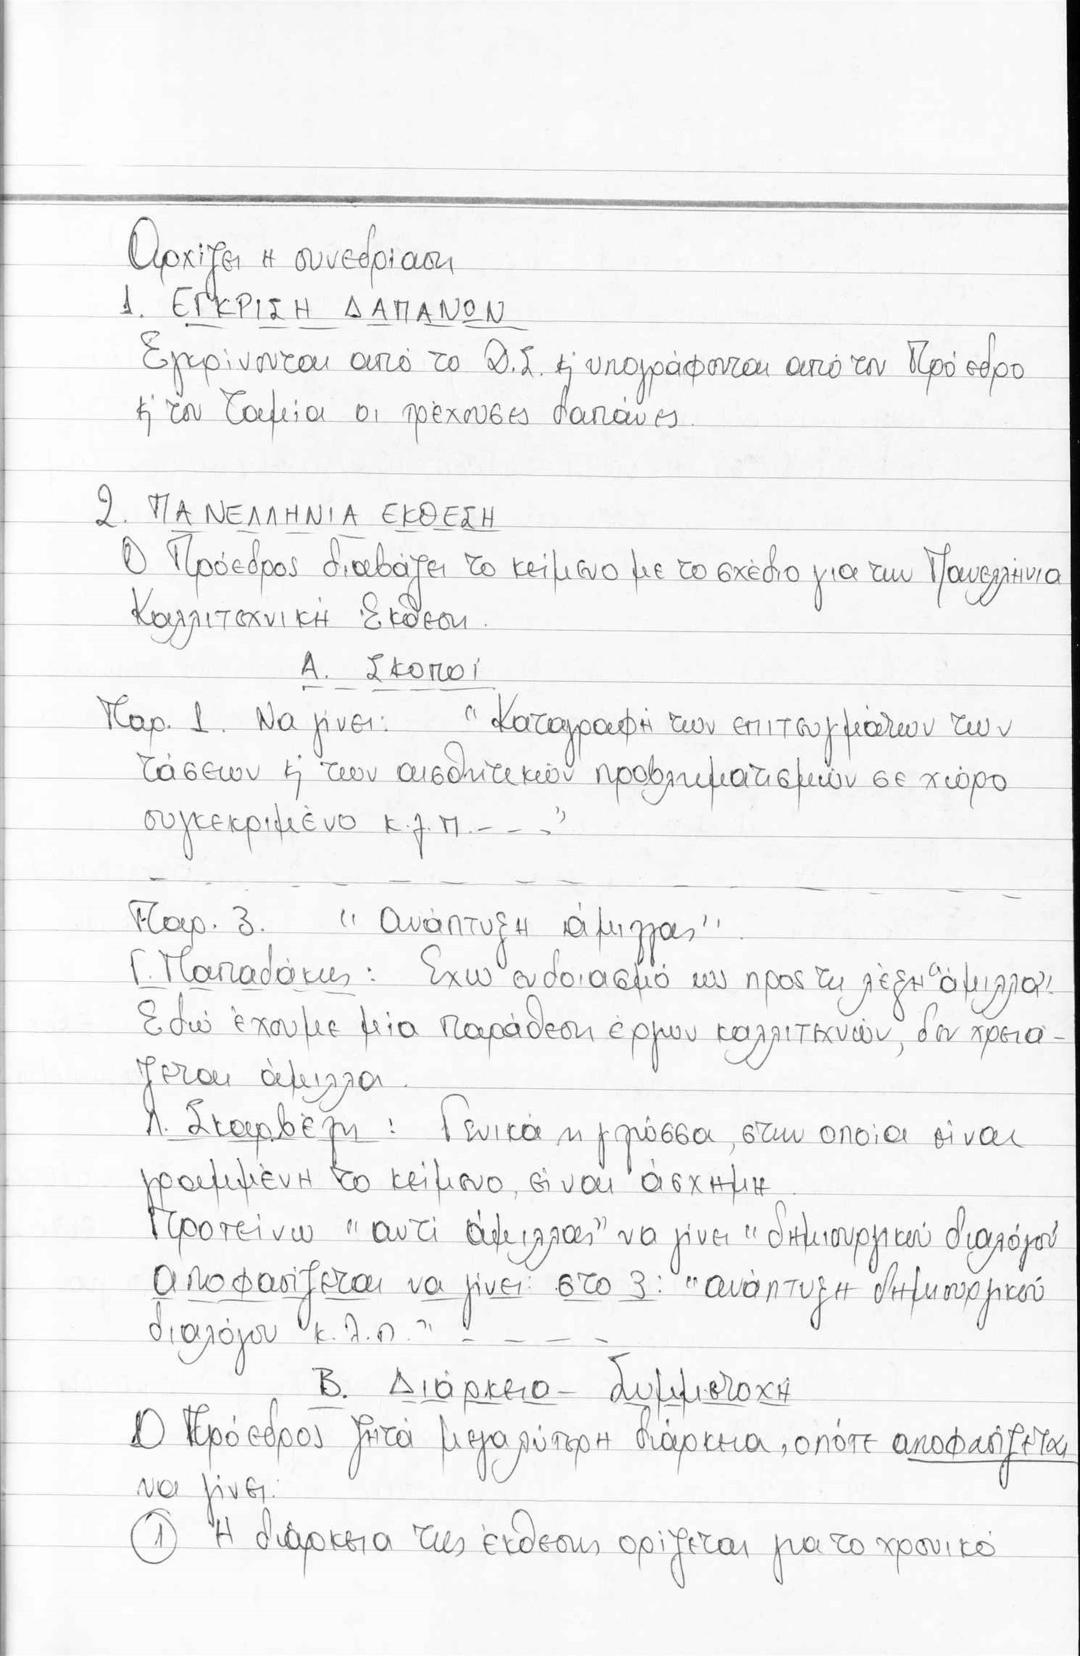 Αρχίζει η συνεδρίαση
1. ΕΓΚΡΙΣΗ ΔΑΠΑΝΩΝ
Εγκρίνονται από το Δ.Σ. κ' υπογράφονται από τον Πρόεδρο
κ' τον Ταμία οι τρέχουσες δαπάνες.
2. ΠΑΝΕΛΛΗΝΙΑ ΕΚΘΕΣΗ
Ο Πρόεδρος διαβάζει το κείμενο με το σχέδιο για την Πανελλήνια
Καλλιτεχνική Έκθεση.
Α. Σκοποί
Παρ. 1. Να γίνει: "Καταγραφή των επιτευγμάτων των
τάσεων κ' των αισθητικών προβληματισμών σε χώρο
συγκεκριμένο κ.λ.π. - - -"
Παρ. 3. "Ανάπτυξη άμιλλας".
Γ. Παπαδάκης: Έχω ενδοιασμό ως προς τη λέξη "άμιλλα".
Εδώ έχουμε μία παράθεση έργων καλλιτεχνών, δεν χρειά-
ζεται άμιλλα.
Λ. Σκαρβέλη: Γενικά η γλώσσα, στην οποία είναι
γραμμένη το κείμενο, είναι άσχημη
Προτείνω "αντί άμιλλας" να γίνει "δημιουργικού διαλόγου
αποφασίζεται να γίνει: στο 3: "ανάπτυξη δημιουργικού
διαλόγου κ.λ.π." - - - -
Β. Διάρκεια - Συμμετοχή
Ο Πρόεδρος ζητά μεγαλύτερη διάρκεια, οπότε αποφασίζεται
να γίνει:
1 Η διάρκεια της έκθεσης ορίζεται για το χρονικό